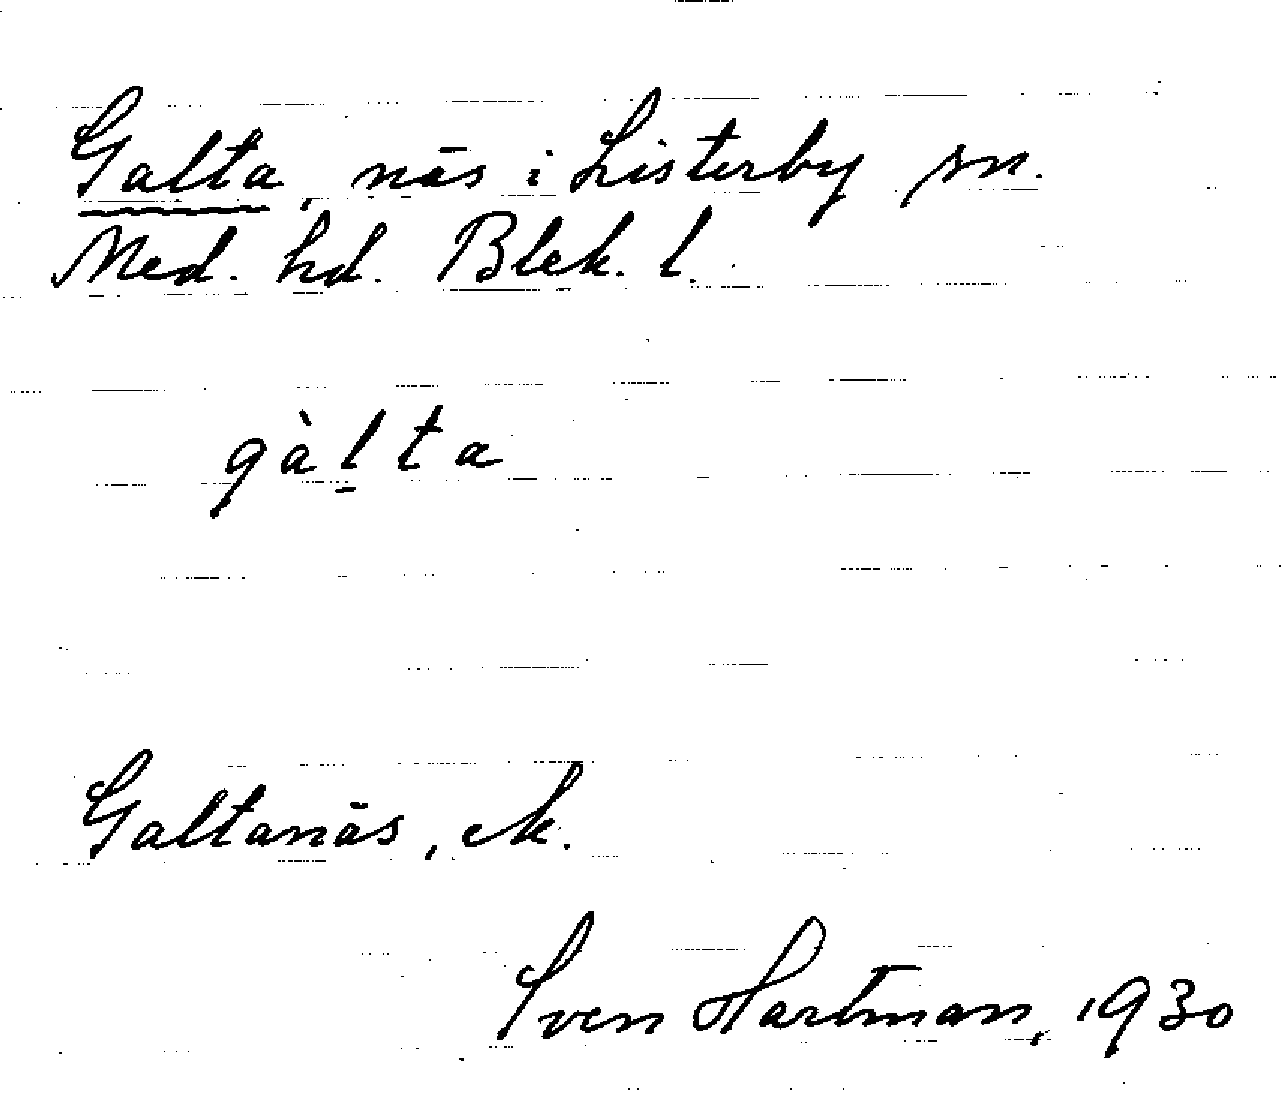 Galta, näs i Listerby sn.
Med. hd. Blek. l.
gàl̠ta
Galtanäs, ek.
Sven Hartman, 1930